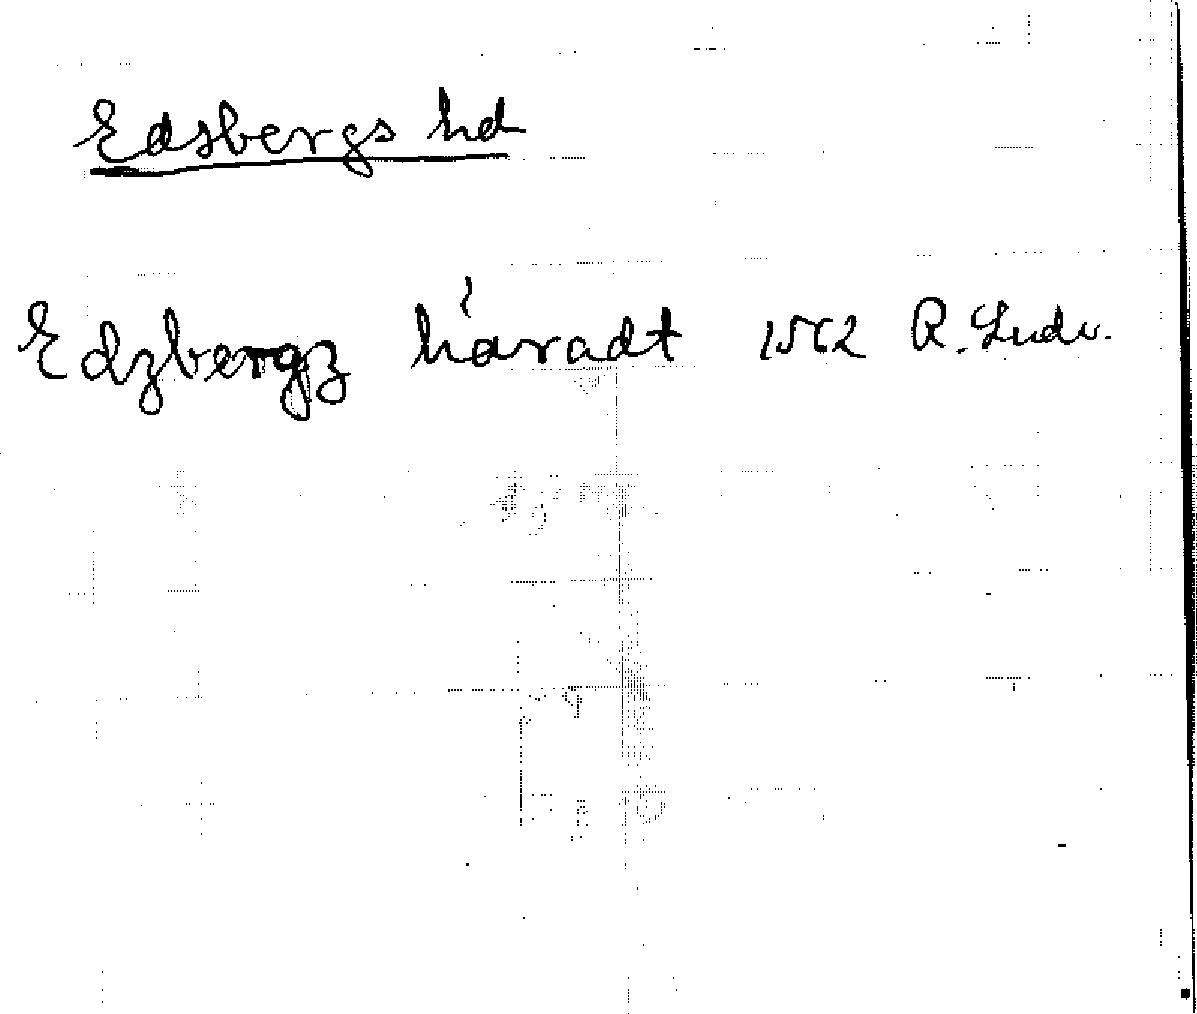 Edsbergs hd
Edzbergz håradt 1562 R. Ludv.